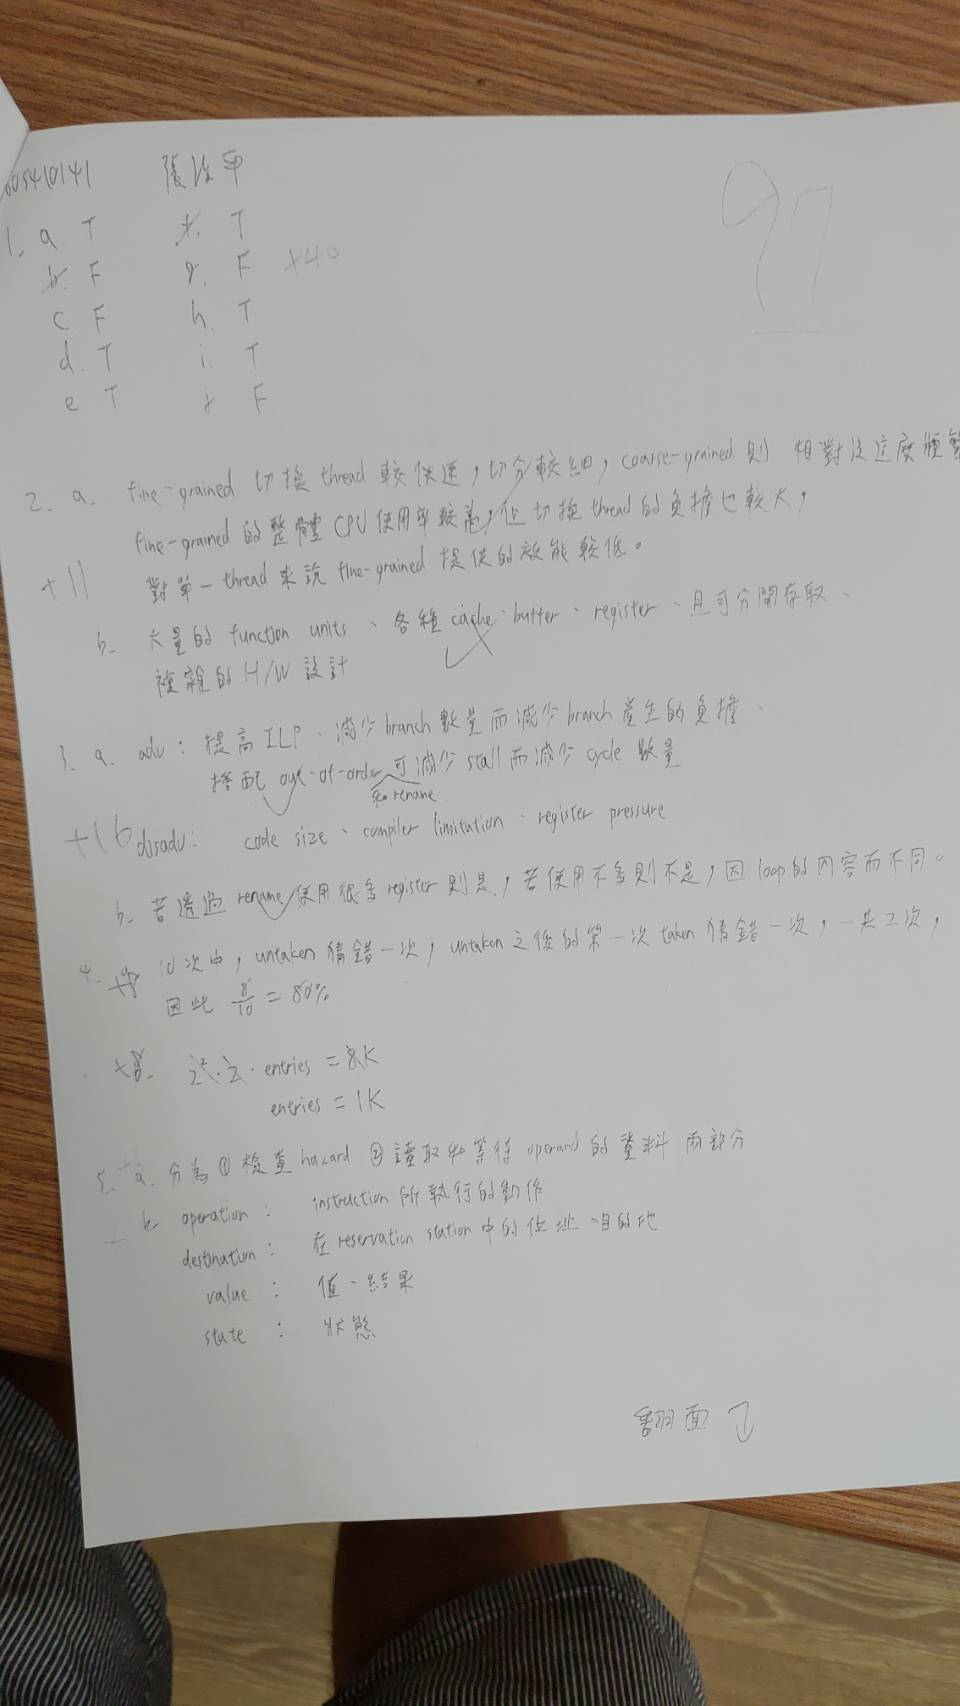 605410141 張 甲
97
1. a T f. T
b. F g. F +40
c F h. T
d. T i. T
e T j F
2. a. fine-grained 切換 thread 較快速，切分較細，coarse-grained 則 相對沒這麼頻繁
fine-grained 的整體 CPU 使用率較高，但切換 thread 的負擔也較大，
+11 對單一 thread 來說 fine-grained 提供的效能較低。
b. 大量的 function units、各種 cache、buffer、register、且可分開存取、
複雜的 H/W 設計
3. a. adv: 提高 ILP、減少 branch 數量而減少 branch 產生的負擔、
搭配 out-of-order 和 rename 可減少 stall 而減少 cycle 數量
+16 disadv: code size、compiler limitation、register pressure
b. 若透過 rename 使用很多 register 則是，若使用不多則不是，因 loop 的內容而不同。
4. a. 10次中，untaken 猜錯一次，untaken 之後的第一次 taken 猜錯一次，一共2次，
因此 8/10 = 80%
+8 b. 2²·2·entries = 8K
entries = 1K
5. a. 分為 ① 檢查 hazard ② 讀取和等待 operand 的資料 兩部分
b operation: instruction 所執行的動作
destination: 在 reservation station 中的位址、目的地
value: 值、結果
state: 狀態
翻面